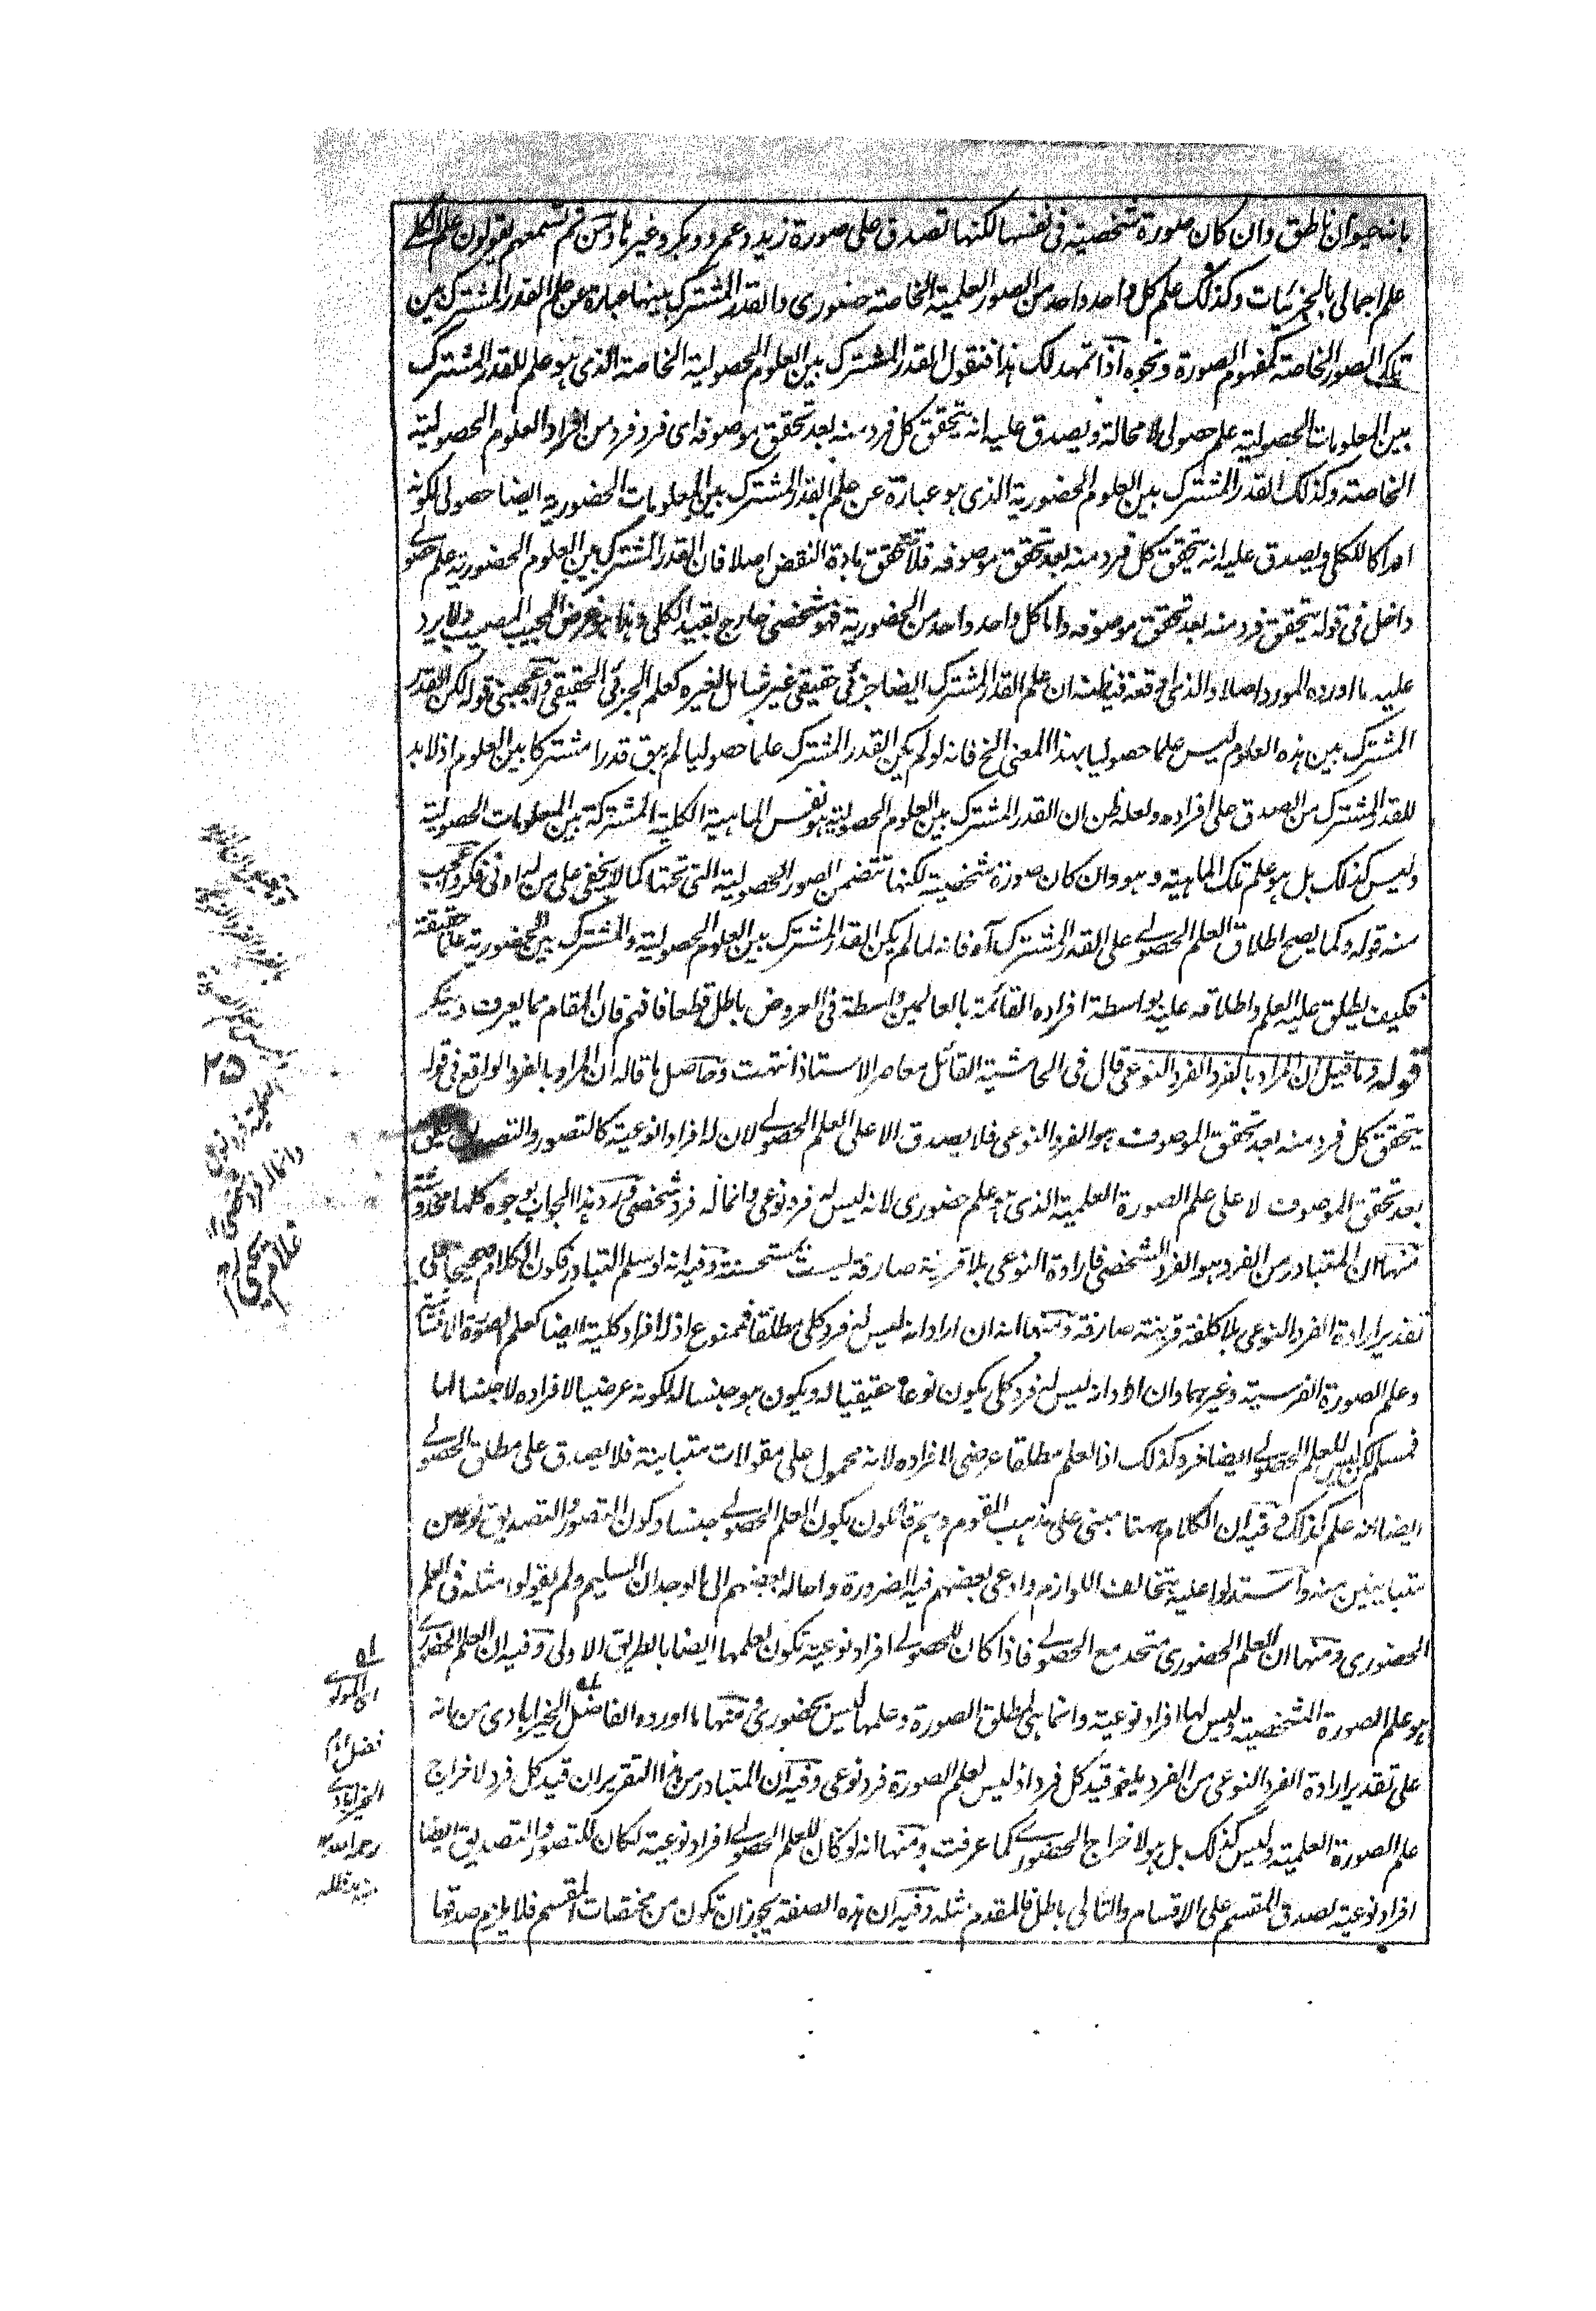 بانه حيوان ناطق وان كان صورة شخصية فى نفسها لكنها تصدق على صورة زيد وعمرو وبكر وغيرها ومن ثم تسمعهم يقولون علم الكلى
علم اجمالى بالجزئيات وكذلك علم كل واحد واحد من الصور العلمية الخاصة حضورى والقدر المشترك بينها عبارة عن علم القدر المشترك بين
تلك الصور الخاصة كمفهوم الصورة ونحوه اذا تمهد لك هذا فنقول القدر المشترك بين العلوم الحصولية الخاصة الذى هو علم للقدر المشترك
بين المعلومات الحصولية علم حصولى لا محالة ويصدق عليه انه يتحقق كل فرد منه بعد تحقق موصوفه اى فرد فرد من افراد العلوم الحصولية
الخاصة وكذلك القدر المشترك بين العلوم الحضورية الذى هو عبارة عن علم القدر المشترك بين المعلومات الحضورية ايضا حصولى لكونه
ادراكا للكلى ويصدق عليه انه يتحقق كل فرد منه بعد تحقق موصوفه فلا تتحقق مادة النقض اصلا فان القدر المشترك بين العلوم الحضورية علم حصولى
داخل فى قوله يتحقق فرد منه بعد تحقق موصوفه واما كل واحد واحد من الحضورية فهو شخصى خارج بقيد الكلى وهذا هو غرض المجيب المصيب ولا يرد
عليه ما اورده المورد اصلا والذى اوقعه فيه ظنه ان علم القدر المشترك ايضا جزئى حقيقى غير شامل لغيره كعلم الجزئى الحقيقى واعجبنى قوله لكن القدر
المشترك بين هذه العلوم ليس علما حصوليا بهذا المعنى الخ فانه لو لم يكن القدر المشترك علما حصوليا لم يبق قدرا مشتركا بين العلوم اذ لا بد
للقدر المشترك من الصدق على افراده ولعله ظن ان القدر المشترك بين العلوم الحصولية هو نفس الماهية الكلية المشتركة بين المعلومات الحصولية
وليس كذلك بل هو علم تلك الماهية وهو وان كان صورة شخصية لكنها تتضمن الصور الحصولية التى تحتها كما لا يخفى على من له ادنى فكر واعجب
منه قوله وكما يصح اطلاق العلم الحصولى على القدر المشترك آه فانه لما لم يكن القدر المشترك بين العلوم الحصولية والمشترك بين الحضورية علما حقيقة
فكيف يطلق عليه العلم واطلاقه عليه بواسطة افراده القائمة بالعالمين واسطة فى العروض باطل قطعا فافهم فان المقام مما يعرف وينكر
قوله وما قيل ان المراد بالفرد الفرد النوعى قال فى الحاشية القائل معاصر الاستاذ انتهت وحاصل ما قاله ان المراد بالفرد الواقع فى قوله
يتحقق كل فرد منه بعد تحقق الموصوف هو الفرد النوعى فلا يصدق الا على العلم الحصولى لان له افرادا نوعية كالتصور والتصديق
بعد تحقق الموصوف لا على علم الصورة العلمية الذى هو علم حضورى لانه ليس له فرد نوعى وانما له فرد شخصى ورد هذا الجواب بوجوه كلها مخدوشة
منها ان المتبادر من الفرد هو الفرد الشخصى فارادة النوعى بلا قرينة صارفة ليست بمستحسنة وفيه انه لو سلم التبادر فكون الكلام صحيحا على
تقدير ارادة الفرد النوعى بلا كلفة قرينة صارفة ومنها انه ان اراد انه ليس له فرد كلى مطلقا فممنوع اذ له افراد كلية ايضا كعلم الصورة الانسانية
وعلم الصورة الفرسية وغيرهما وان اراد انه ليس له فرد كلى يكون نوعا حقيقيا له ويكون هو جنسا له لكونه عرضيا لافراده لا جنسا لها
فمسلم لكن ليس للعلم الحصولى ايضا فرد كذلك اذ العلم مطلقا عرضى لافراده لانه محمول على مقولات متباينة فلا يصدق على مطلق الحصولى
ايضا انه علم كذلك وفيه ان الكلام ههنا مبنى على مذهب القوم وهم قائلون بكون العلم الحصولى جنسا وكون التصور والتصديق نوعين
متباينين منه واستدلوا عليه بتخالف اللوازم وادعى بعضهم فيه الضرورة واحاله بعضهم الى الوجدان السليم ولم يقولوا مثله فى العلم
الحضورى ومنها ان العلم الحضورى متحد مع الحصولى فاذا كان للحصولى افراد نوعية تكون لعلمها ايضا بالطريق الاولى وفيه ان العلم الحضورى
هو علم الصورة الشخصية وليس لها افراد نوعية وانما هى لمطلق الصورة وعلمها ليس بحضورى ومنها ما اورده الفاضل الخيرابادى من انه
على تقدير ارادة الفرد النوعى من الفرد يلغو قيد كل فرد اذ ليس لعلم الصورة فرد نوعى وفيه ان المتبادر من هذا التقرير ان قيد كل فرد لاخراج
علم الصورة العلمية وليس كذلك بل هو لاخراج الحضورى كما عرفت ومنها انه لو كان للعلم الحصولى افراد نوعية لكان للتصور والتصديق ايضا
افراد نوعية لصدق المقسم على الاقسام والتالى باطل فالمقدم مثله وفيه ان هذه الصفة يجوز ان تكون من مختصات المقسم فلا يلزم صدقها
٢٥
وانما له فرد شخصى ١٢
غلام يحيى
له
اى المولوى
فضل امام
الخيرابادى
رحمه الله